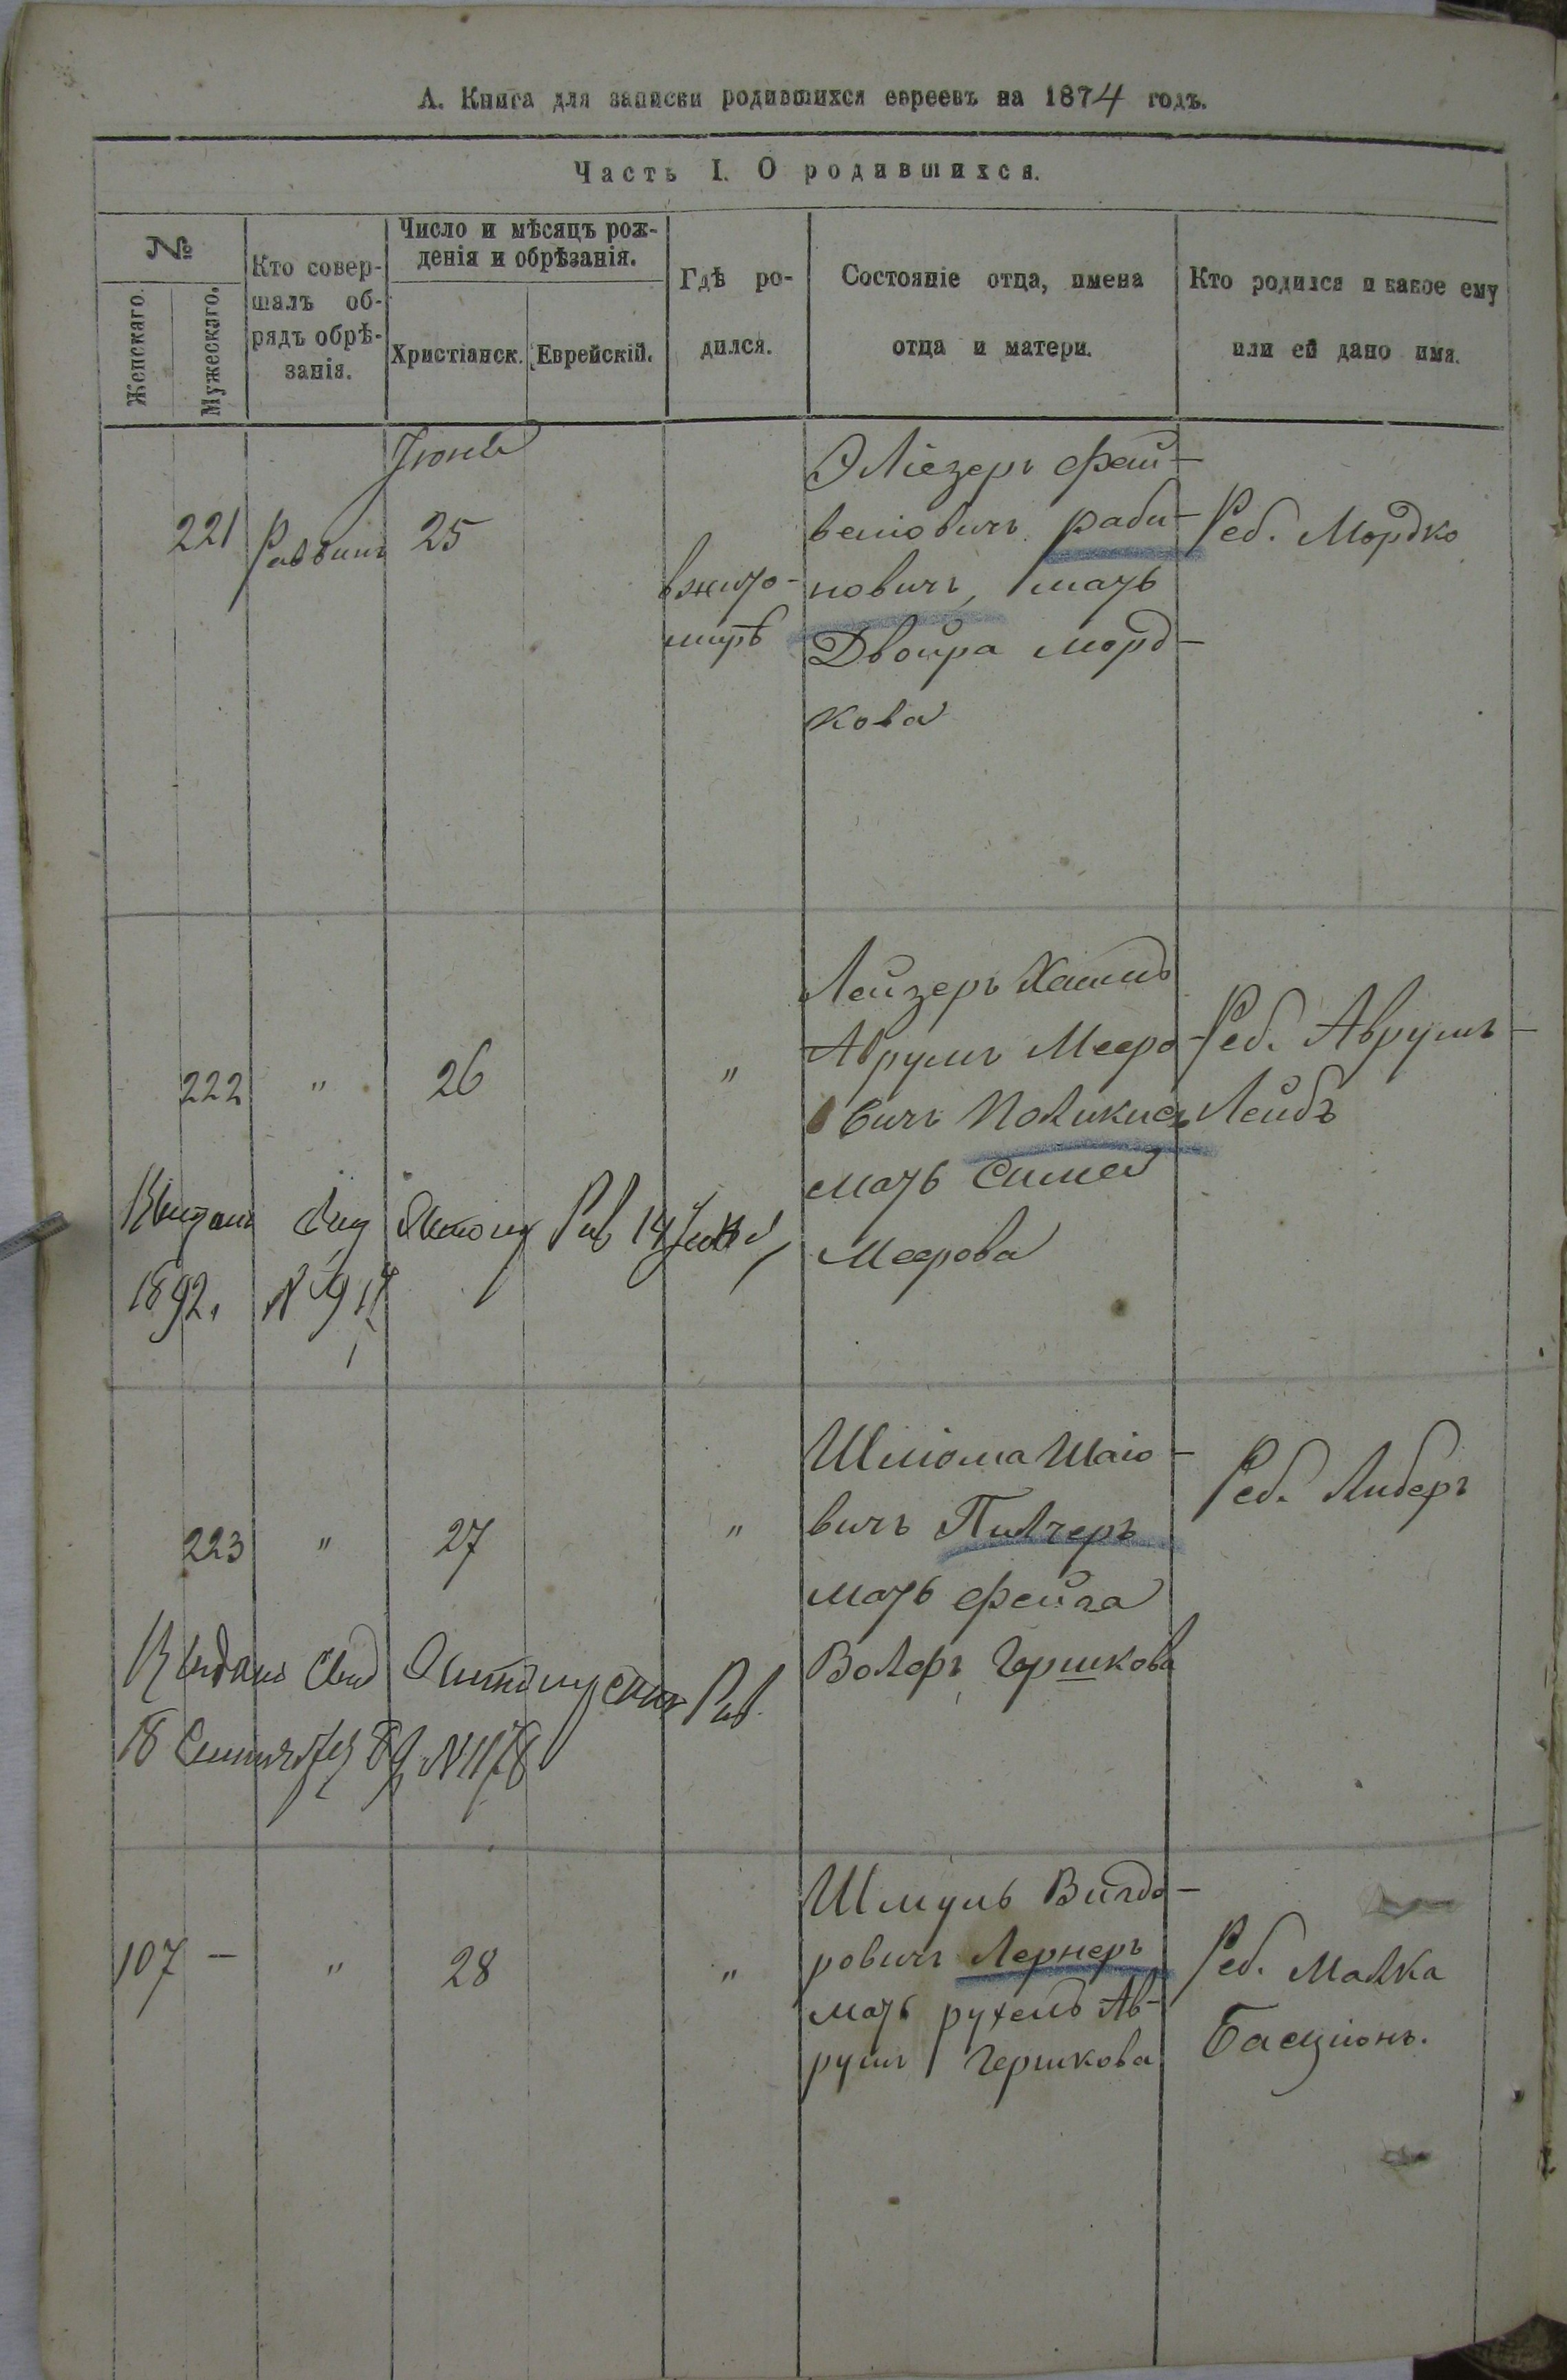 А. Книга для записки родившихся евреевъ на 1874 годъ.
Часть I. О родившихся.
№
Женскаго.
Мужескаго.
Кто совер-
шалъ об-
рядъ обрѣ-
занія.
Число и мѣсяцъ рож-
денія и обрѣзанія.
Христіанск.
Еврейскій.
Гдѣ ро-
дился.
Состояніе отца, имена
отца и матери.
Кто родился и какое ему
или ей дано имя.
221
Раввинъ
25
вжито-
мирѣ
Эліезеръ Фай-
вешовичъ Раби-
новичъ, мать
Двойра Морд-
кова
Реб. Мордко
222
"
26
"
Лейзеръ Хаимъ
Аврумъ Мееро-
вичъ
мать Симе
Меерова
Реб. Аврумъ-
Лейбъ
14
1892.
223
"
27
"
Шліома Шаіо-
вичъ Пилчеръ
мать Фейга
Волфъ Гершкова
Реб. Либеръ
18 89 N 1178
107 -
"
28
"
Шмуль Вигдо-
ровичъ Лернеръ
мать рухель Ав-
румъ Гершкова
Реб. Малка
Басціонъ.